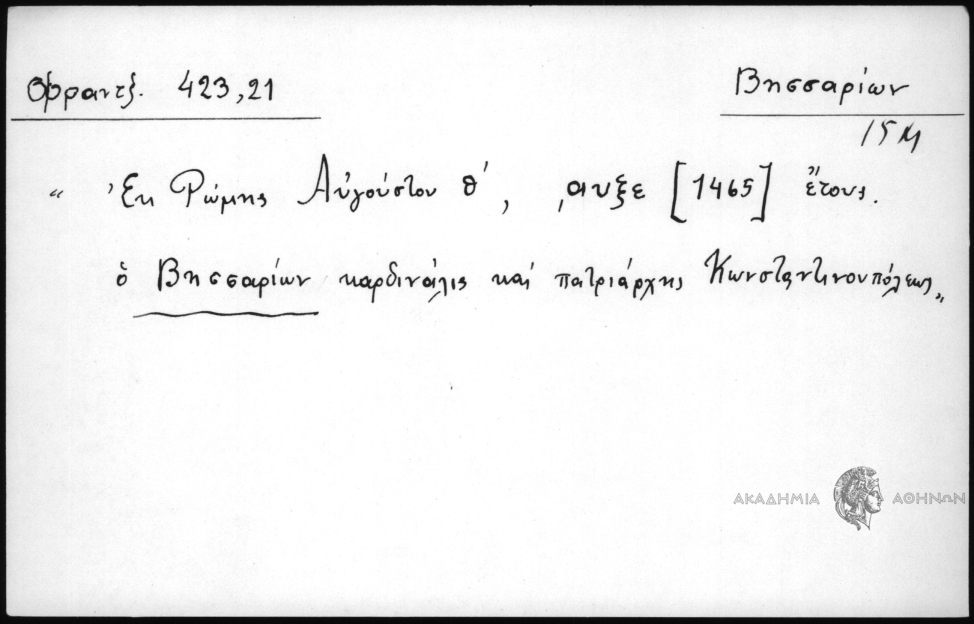 Σφραντζ. 423,21
Βησσαρίων
15 Μ
“ Ἐκ Ῥώμης Αὐγούστου θ΄, ͵αυξε [1465] ἔτους.
ὁ Βησσαρίων καρδινάλις καὶ πατριάρχης Κωνσταντινουπόλεως„
ΑΚΑΔΗΜΙΑ ΑΘΗΝΩΝ